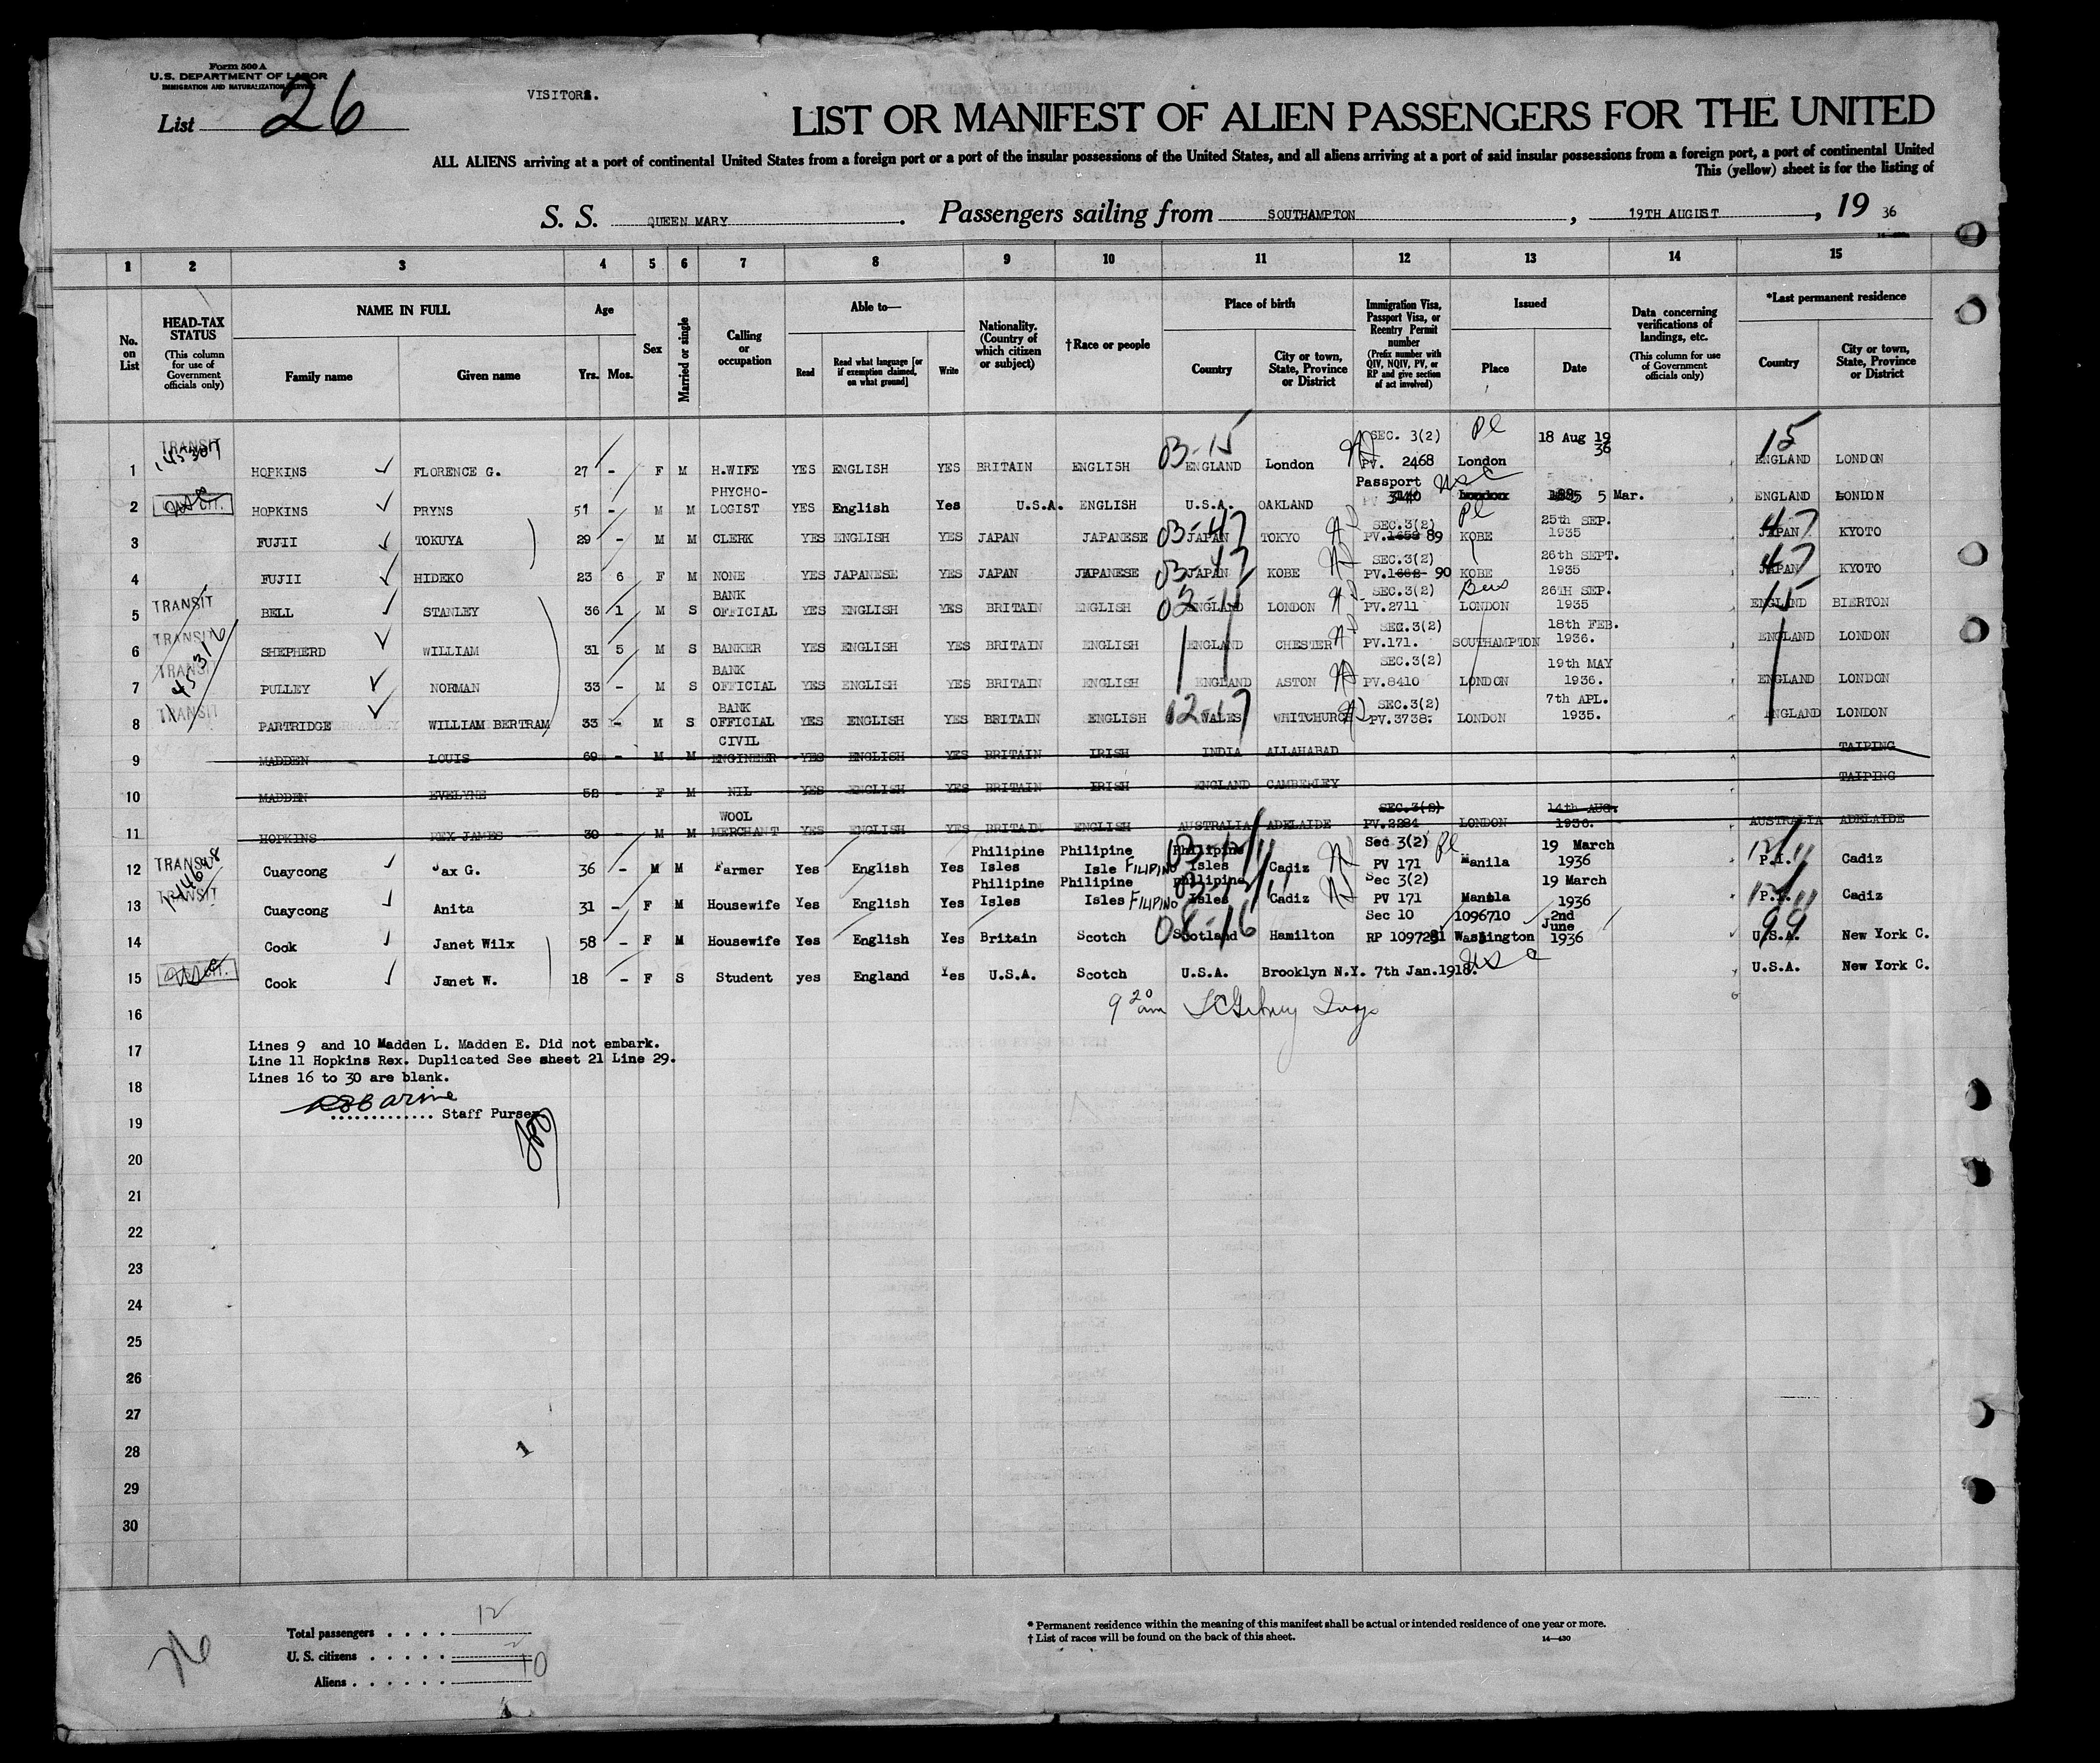 Form 500 A
U.S. DEPARTMENT OF LABOR
IMMIGRATION AND NATURALIZATION SERVICE
List 26
VISITORS.
LIST OR MANIFEST OF ALIEN PASSENGERS FOR THE UNITED
ALL ALIENS arriving at a port of continental United States from a foreign port or a port of the insular possessions of the United States, and all aliens arriving at a port of said insular possessions from a foreign port, a port of continental United
This (yellow) sheet is for the listing of
S. S. QUEEN MARY. Passengers sailing from SOUTHAMPTON, 19TH AUGUST, 19 36
1 2 3 4 5 6 7 8 9 10 11 12 13 14 15
No. on List
HEAD-TAX STATUS (This column for use of Government officials only)
NAME IN FULL
Family name Given name
Age
Yrs. Mos.
Sex
Married or single
Calling or occupation
Able to—
Read Read what language [or if exemption claimed, on what ground] Write
Nationality. (Country of which citizen or subject)
†Race or people
Place of birth
Country City or town, State, Province or District
Immigration Visa, Passport Visa, or Reentry Permit number (Prefix number with QIV, NQIV, PV, or RP and give section of act involved)
Issued
Place Date
Data concerning verifications of landings, etc. (This column for use of Government officials only)
*Last permanent residence
Country City or town, State, Province or District
1 TRANSIT HOPKINS FLORENCE G. 27 - F M H.WIFE YES ENGLISH YES BRITAIN ENGLISH 03-15 ENGLAND London SEC. 3(2) PV. 2468 Pl London 18 Aug 19 36 15 ENGLAND LONDON
2 HOPKINS PRYNS 51 - M M PHYCHO-LOGIST YES English Yes U.S.A. ENGLISH U.S.A. OAKLAND Passport 3140 USC London 5 Mar. ENGLAND LONDON
3 FUJII TOKUYA 29 - M M CLERK YES ENGLISH YES JAPAN JAPANESE 03-47 JAPAN TOKYO SEC.3(2) PV.1658 89 Pl KOBE 25th SEP. 1935 47 JAPAN KYOTO
4 FUJII HIDEKO 23 6 F M NONE YES JAPANESE YES JAPAN JAPANESE 03-47 JAPAN KOBE SEC.3(2) PV.1668 90 KOBE 26th SEPT. 1935 47 JAPAN KYOTO
5 TRANSIT BELL STANLEY 36 1 M S BANK OFFICIAL YES ENGLISH YES BRITAIN ENGLISH ENGLAND LONDON SEC.3(2) PV.2711 Bus LONDON 26TH SEP. 1935 15 ENGLAND BIERTON
6 TRANSIT SHEPHERD WILLIAM 31 5 M S BANKER YES ENGLISH YES BRITAIN ENGLISH ENGLAND CHESTER SEC.3(2) PV.171. SOUTHAMPTON 18th FEB. 1936. ENGLAND LONDON
7 TRANSIT PULLEY NORMAN 33 - M S BANK OFFICIAL YES ENGLISH YES BRITAIN ENGLISH ENGLAND ASTON SEC.3(2) PV.8410 LONDON 19th MAY 1936. ENGLAND LONDON
8 TRANSIT PARTRIDGE WILLIAM BERTRAM 33 - M S BANK OFFICIAL YES ENGLISH YES BRITAIN ENGLISH 12-17 WALES WHITCHURCH SEC.3(2) PV.3738. LONDON 7th APL. 1935. ENGLAND LONDON
9 MADDEN LOUIS 69 - M M CIVIL ENGINEER YES ENGLISH YES BRITAIN IRISH INDIA ALLAHABAD TAIPING
10 MADDEN EVELYNE 58 - F M NIL YES ENGLISH YES BRITAIN IRISH ENGLAND CAMBERLEY TAIPING
11 HOPKINS REX JAMES 30 - M M WOOL MERCHANT YES ENGLISH YES BRITAIN ENGLISH AUSTRALIA ADELAIDE SEC.3(2) PV.2284 LONDON 14th AUG. 1936. AUSTRALIA ADELAIDE
12 TRANSIT Cuaycong Jax G. 36 - M M Farmer Yes English Yes Philipine Isles Philipine Isle FILIPINO Philipine Isles Cadiz Sec 3(2) PV 171 Pl Manila 19 March 1936 P.I. Cadiz
13 TRANSIT Cuaycong Anita 31 - F M Housewife Yes English Yes Philipine Isles Philipine Isles FILIPINO Philipine Isles Cadiz Sec 3(2) PV 171 Manila 19 March 1936 P.I. Cadiz
14 Cook Janet Wilx 58 - F M Housewife Yes English Yes Britain Scotch 08-16 Scotland Hamilton Sec 10 RP 1097281 1096710 Washington 2nd June 1936 99 U.S.A. New York C.
15 Cook Janet W. 18 - F S Student yes England Yes U.S.A. Scotch U.S.A. Brooklyn N.Y. 7th Jan.1918. USC U.S.A. New York C.
16 9 20 am
17 Lines 9 and 10 Madden L. Madden E. Did not embark.
Line 11 Hopkins Rex. Duplicated See sheet 21 Line 29.
18 Lines 16 to 30 are blank.
19 Staff Purser.
20
21
22
23
24
25
26
27
28
29
30
Total passengers . . . . 12
U. S. citizens . . . . . 2
Aliens . . . . . . 10
* Permanent residence within the meaning of this manifest shall be actual or intended residence of one year or more.
† List of races will be found on the back of this sheet.
14—430